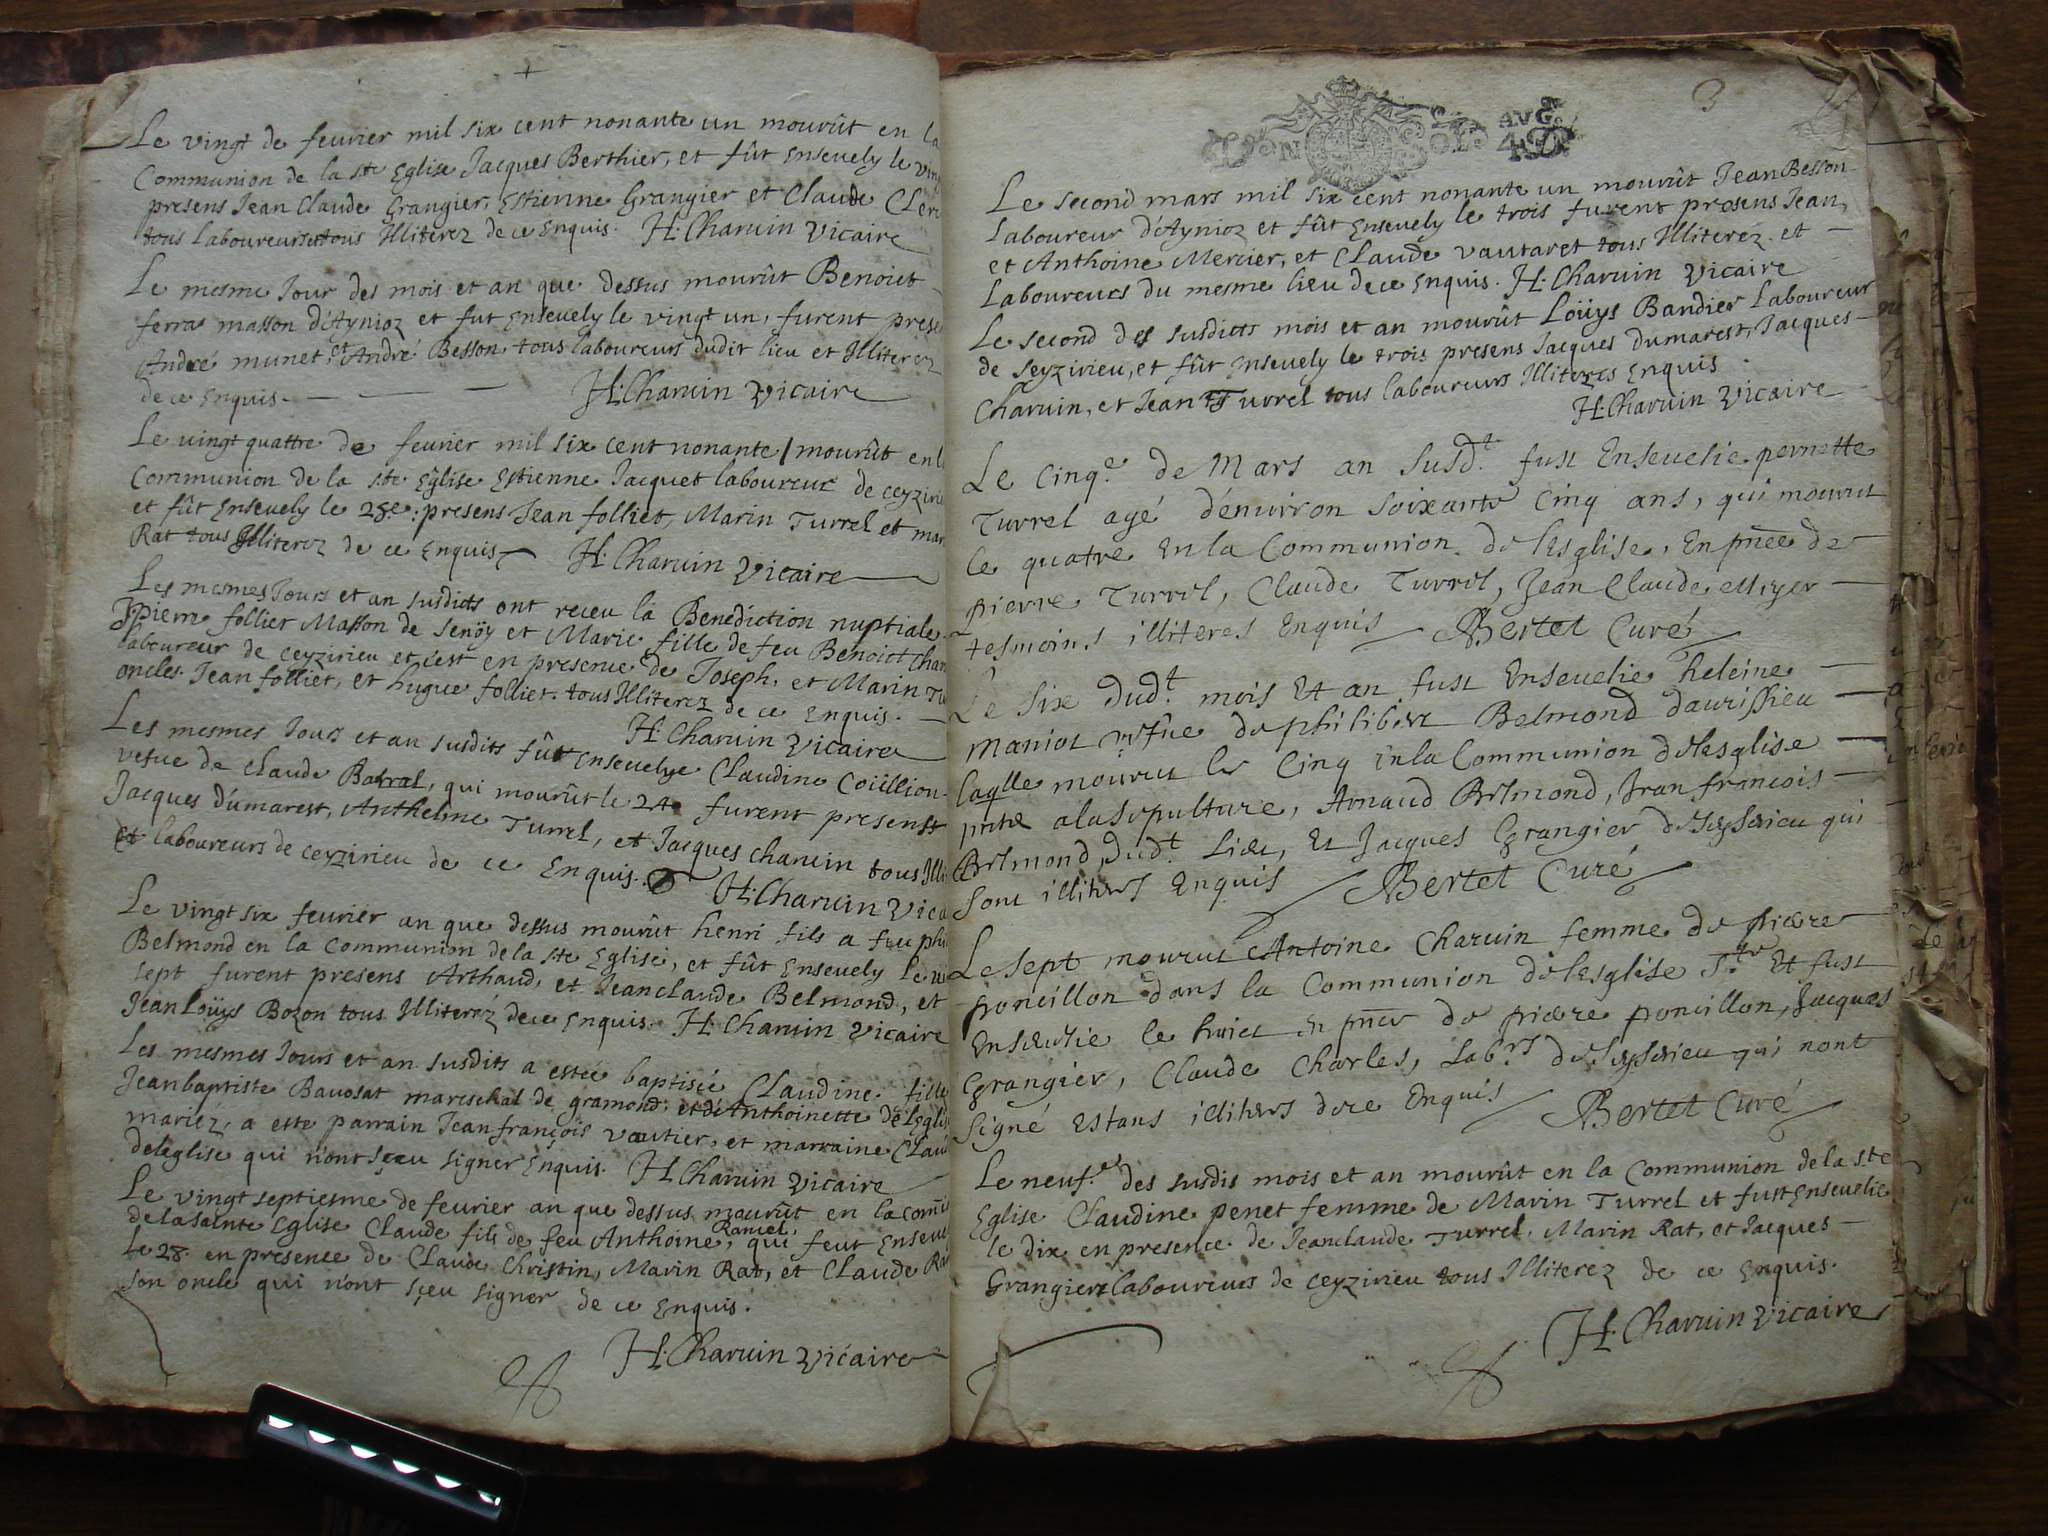 Le vingt de feurier mil six cent nonante un mourût en la
Communion de la ste Eglise Jacques Berthier, et fût Enseuely le vin
presens Jean Claude Grangier, Estienne Grangier et Claude Cler
tous Laboureurs et tous Illiterez de ce Enquis. H: Charuin Vicaire
Le mesme Jour des mois et an que dessus mourût Benoict
ferra masson d'Aynioz et fut Enseuely le vingt un, furent prese
André munet, et André Besson tous laboureurs dudit lieu et Illiterez
de ce Enquis. H: Charuin Vicaire
Le uingt quattre de feurier mil six cent nonante / mourût en l
Communion de la ste Eglise Estienne Jacquet laboureur de ceyziri
et fût Enseuely le 25e: presens Jean folliet, Marin Turrel et mar
Rat tous Illiterez de ce Enquis H: Charuin Vicaire
Les mesmes Jours et an susdicts ont receu la Benediction nuptiale
Pierre follier Masson de Senöy et Marie fille de feu Benoict Char
laboureur de ceyzirieu et c'est en presence de Joseph, et Marin Tu
oncles. Jean folliet, et hugue folliet. tous Illiterez de ce Enquis.
H: Charuin Vicaire
Les mesmes Jours et an susdits fût Enseuelye Claudine Coüillion
vefue de Claude Batral, qui mourût le 24e furent presens
Jacques d'umarest, Anthelme Turrel, et Jacques charuin tous Illi
et laboureurs de ceyzirieu de ce Enquis. H: Charuin Vica
Le vingt six feurier an que dessus mourût henri fils a feu phi
Belmond en la Communion de la ste Eglise, et fût Enseuely le vi
sept furent presens Arthaud, et Jeanclaude Belmond, et
Jean Loüys Bozon tous Illiterez de ce Enquis. H: Charuin Vicaire
Les mesmes Jours et an susdits a estée baptisée Claudine fille
Jeanbaptiste Bauosat mareschal de gramond, et d'Anthoinette de l'Eglis
mariez, a este parrain Jean françois vautier, et marraine Clau
deleglise qui n'ont sçeu signer Enquis. H Charuin Vicaire
Le vingt septiesme de feurier an que dessus mourût en la comn
de la sainte Eglise Claude fils de feu Anthoine Ramel, qui feut Enseue
Le 28. en presence de Claude Christin, Marin Rat, et Claude Ra
son oncle qui n'ont sçeu signer de ce Enquis.
H: Charuin Vicaire
3
AVG.
Le second mars mil six cent nonante un mourût Jean Besson
Laboureur d'Aynioz et fût Enseuely le trois furent presens Jean,
et Anthoine Mercier, et Claude vautaret tous Illiterez. et
Laboureurs du mesme lieu de ce Enquis. H: Charuin Vicaire
Le second des susdicts mois et an mourût Loüys Bandier Laboureur
de Seyzirieu, et fût Enseuely le trois presens Jacques Dumarest, Jacques
Charuin, et Jean Turrel tous laboureurs Illiterez Enquis
H: Charuin Vicaire
Le Cinqe de Mars an Susdt fust Enseuelie pernette
Turrel agé d'enuirron soixante cinq ans, qui mourut
le quatre En la Communion de l'Esglise, En pnce de
pierre Turrel, Claude Turrel, Jean Claude
tesmoins illiteres Enquis Bertet Curé
Le six dudt mois Et an fust Enseuelie heleine
Maniot vefue de philibert Belmond daurissieu
laqlle mourut le Cinq En la Communion de lesglise
pnts a la sepulture, Arnaud Belmond, Jean francois
Belmond dudt Lieu, Et Jacques Grangier de Seyserieu qui
sont illiteres Enquis Bertet Curé
Le sept mourut Antoine Charuin femme de pierre
poncillon dans la Communion de lesglise Ste Et fust
Enseuelie le huict En pnce de pierre poncillon, Jacques
Grangier, Claude Charles, Labrs de Seyserieu qui nont
signé Estans illiteres de ce Enquis Bertet Curé
Le neufe des susdis mois et an mourût en la Communion de la ste
Eglise Claudine penet femme de Marin Turrel et fust Enseuelie
le dix en presence de Jeanclaude Turrel, Marin Rat, et Jacques
Grangier laboureurs de ceyzirieu tous Illiterez de ce Enquis.
H: Charuin Vicaire